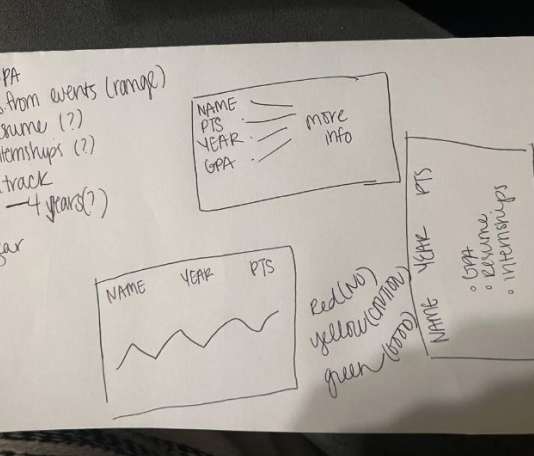 PA
from events (range)
sume (?)
ternships (?)
track
—4 years(?)
ar
NAME
PTS
YEAR
GPA
more
info
NAME YEAR PTS
Red(NO)
yellow(CAUTION)
green(GOOD)
NAME YEAR PTS
• GPA
• Resume
• internships